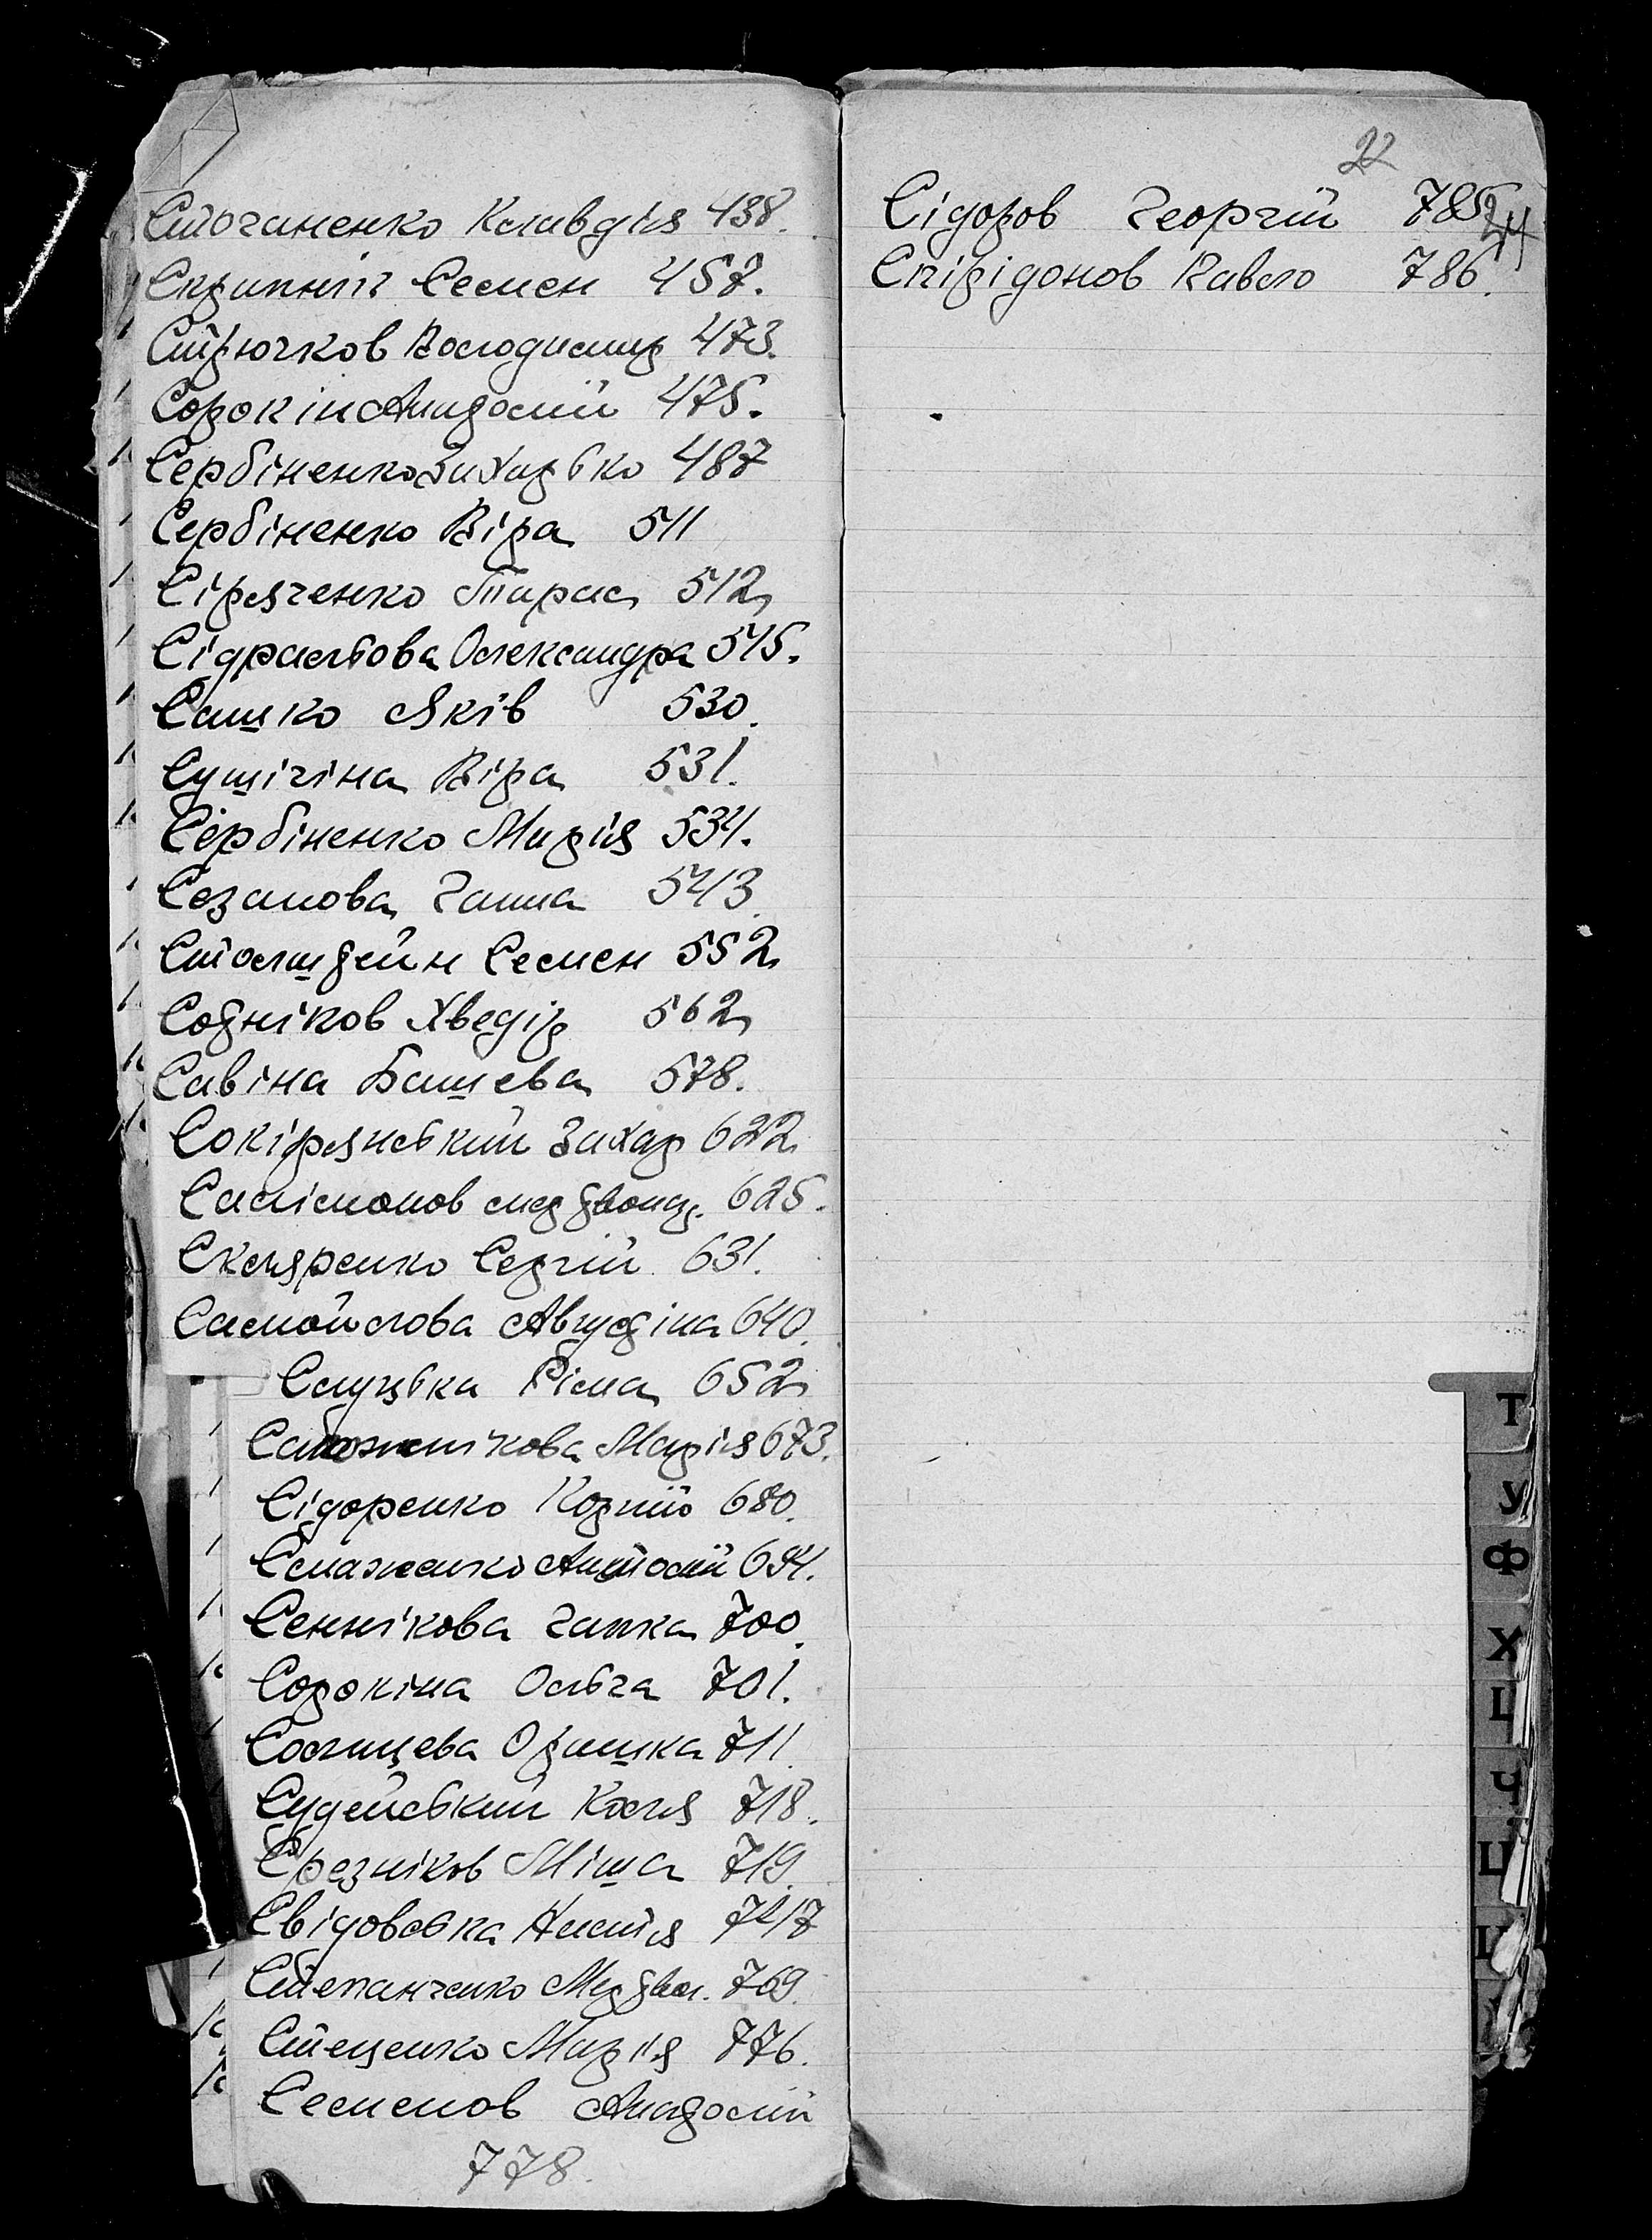 Стоганенко Клавдія 438.
Скрипнік Семен 457.
Стрючков Володимир 473.
Сорокін Анатолій 475.
Сербіненко Захарько 487
Сербіненко Віра 511
Сіряченко Тарас 512
Сідральова Олександра 515.
Сашко Яків 530.
Сушігіна Віра 531.
Сербіненко Марія 534.
Сезанова Ганна 543.
Столштейн Семен 552
Сотніков Хведір 562
Савіна Башева 578.
Сокірянський Захар 622
625.
Скляренко Сергій 631.
Самойлова Августіна 640.
Слуцька Ріма 652
Марія 673.
Сідоренко Корній 680.
Смаженко Анатолій 694.
Сеннікова Галка 700.
Сорокіна Ольга 701.
Солнцева Оришка 711
Судейський Коля 718.
Срезніков Міша 719.
Свідовська Настя 747
Степанченко 769.
Стеценко Марія 776.
Семенов Анатолій
778.
22
Сідоров Георгій 785
24
Спірідонов Павло 786.
Т
У
Ф
Х
Ц
Ч